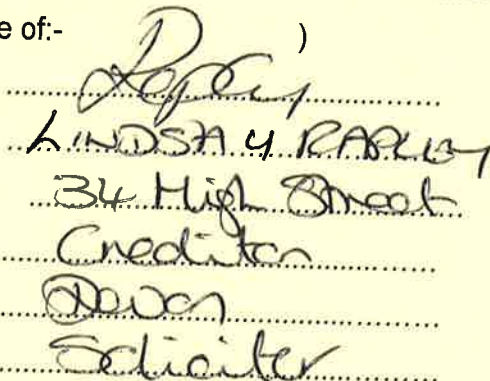 e of:- )
LINDSAY RAPLEY
34 High Street
Crediton
Devon
Solicitor